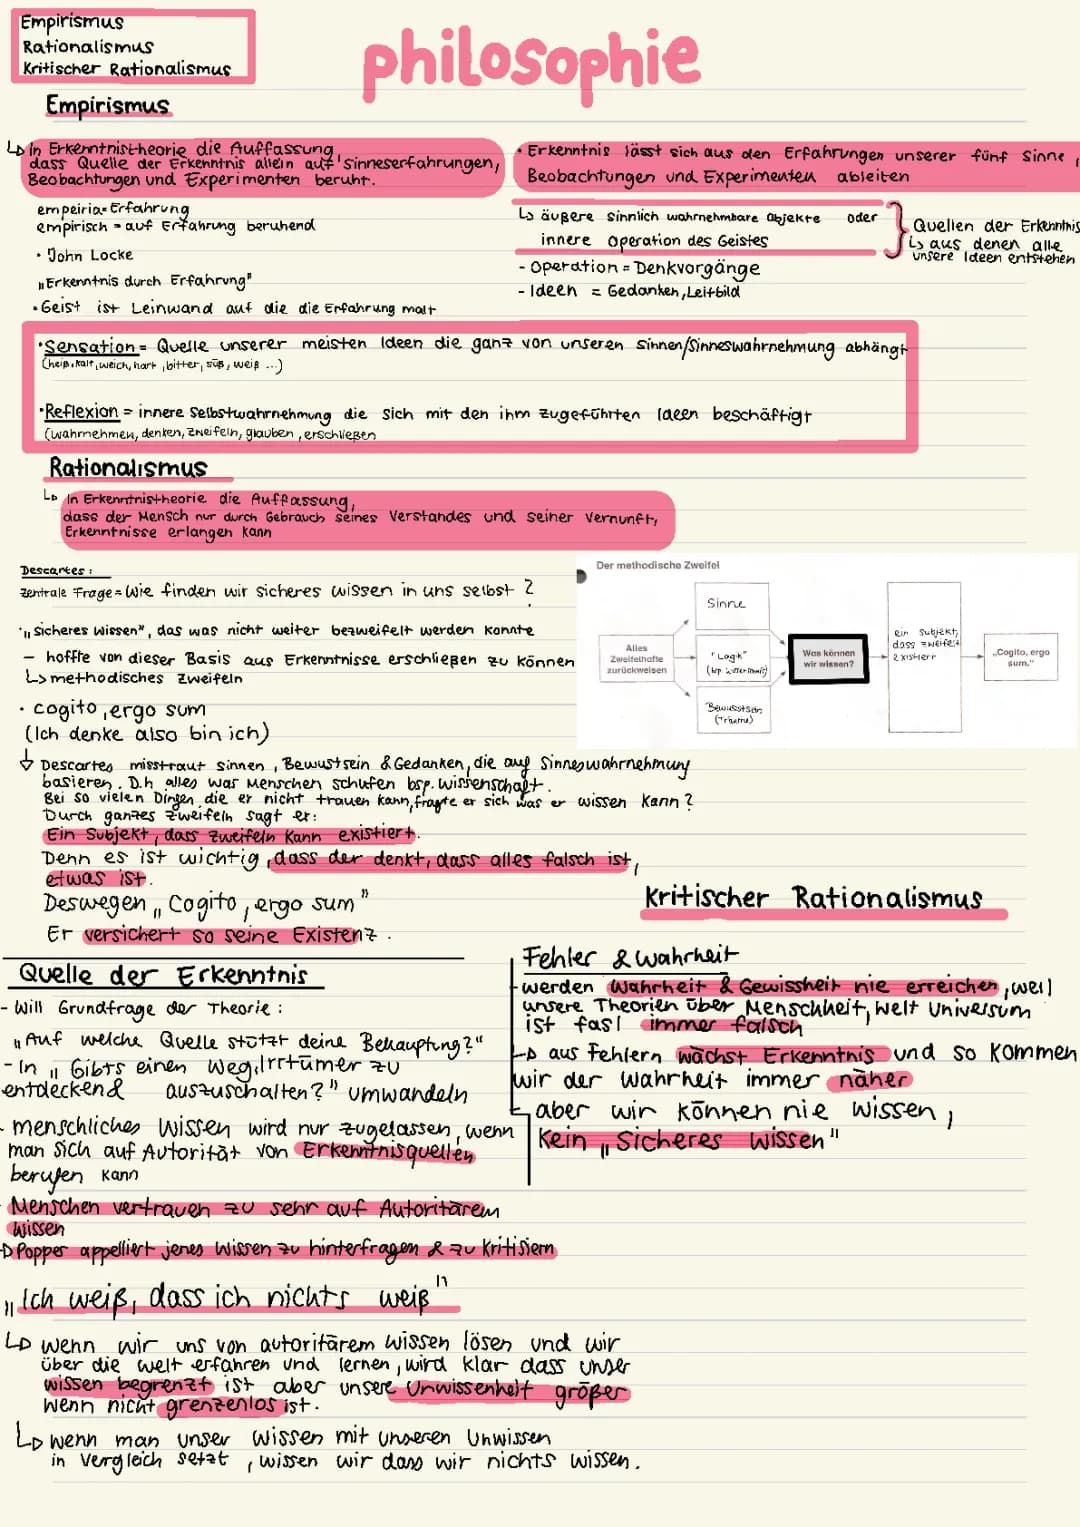 Empirismus
Rationalismus
Kritischer Rationalismus
philosophie
Empirismus
↳ in Erkenntnistheorie die Auffassung,
dass Quelle der Erkenntnis allein auf 'sinneserfahrungen,
Beobachtungen und Experimenten beruht.
empeiria = Erfahrung
empirisch = auf Erfahrung beruhend
• John Locke
„Erkenntnis durch Erfahrung"
• Geist ist Leinwand auf die die Erfahrung malt
• Erkenntnis lässt sich aus den Erfahrungen unserer fünf Sinne,
Beobachtungen und Experimenten ableiten
↳ äußere sinnlich wahrnehmbare Objekte oder
innere Operation des Geistes
Quellen der Erkenntnis
↳ aus denen alle
unsere Ideen entstehen
- Operation = Denkvorgänge
- Ideen = Gedanken, Leitbild
• Sensation = Quelle unserer meisten Ideen die ganz von unseren sinnen/Sinneswahrnehmung abhängt
(heiß, kalt, weich, hart, bitter, süß, weiß ...)
• Reflexion = innere Selbstwahrnehmung die sich mit den ihm zugeführten Ideen beschäftigt
(wahrnehmen, denken, zweifeln, glauben, erschließen
Rationalismus
↳ in Erkenntnistheorie die Auffassung,
dass der Mensch nur durch Gebrauch seines Verstandes und seiner Vernunft,
Erkenntnisse erlangen kann
Descartes:
zentrale Frage = Wie finden wir sicheres wissen in uns selbst?
• „sicheres wissen", das was nicht weiter bezweifelt werden konnte
- hoffte von dieser Basis aus Erkenntnisse erschließen zu können
↳ methodisches zweifeln
• cogito, ergo sum
(Ich denke also bin ich)
Der methodische Zweifel
Alles
Zweifelhafte
zurückweisen
Sinne
"Logik"
Bewusstsein
(Träume)
Was können
wir wissen?
ein Subjekt,
dass zweifelt
existiert
„Cogito, ergo
sum."
↓ Descartes misstraut sinnen, Bewustsein & Gedanken, die auf Sinneswahrnehmung
basieren. D.h alles was Menschen schufen bsp. wissenschaft.
Bei so vielen Dingen die er nicht trauen kann, fragte er sich was er wissen kann?
Durch ganzes zweifeln sagt er:
Ein Subjekt, dass zweifeln kann existiert.
Denn es ist wichtig, dass der denkt, dass alles falsch ist,
etwas ist.
Deswegen „Cogito, ergo sum"
Er versichert so seine Existenz.
Quelle der Erkenntnis
- Will Grundfrage der Theorie:
„Auf welche Quelle stützt deine Behauptung?"
- In „Gibts einen Weg, Irrtümer zu
entdecken & auszuschalten?" umwandeln
- menschliches Wissen wird nur zugelassen, wenn
man sich auf Autorität von Erkenntnisquellen
berufen kann
Menschen vertrauen zu sehr auf Autoritärem
wissen
↳ Popper appelliert jenes wissen zu hinterfragen & zu kritisiern
„Ich weiß, dass ich nichts weiß"
↳ wenn wir uns von autoritärem wissen lösen und wir
über die welt erfahren und lernen, wird klar dass unser
wissen begrenzt ist aber unsere Unwissenheit größer
wenn nicht grenzenlos ist.
↳ wenn man unser wissen mit unseren Unwissen
in vergleich setzt, wissen wir dass wir nichts wissen.
Kritischer Rationalismus
Fehler & wahrheit
werden Wahrheit & Gewissheit nie erreichen, weil
unsere Theorien über Menschheit, Welt Universum
ist fast immer falsch
↳ aus Fehlern wächst Erkenntnis und so kommen
wir der wahrheit immer näher
aber wir können nie wissen,
kein „Sicheres wissen"